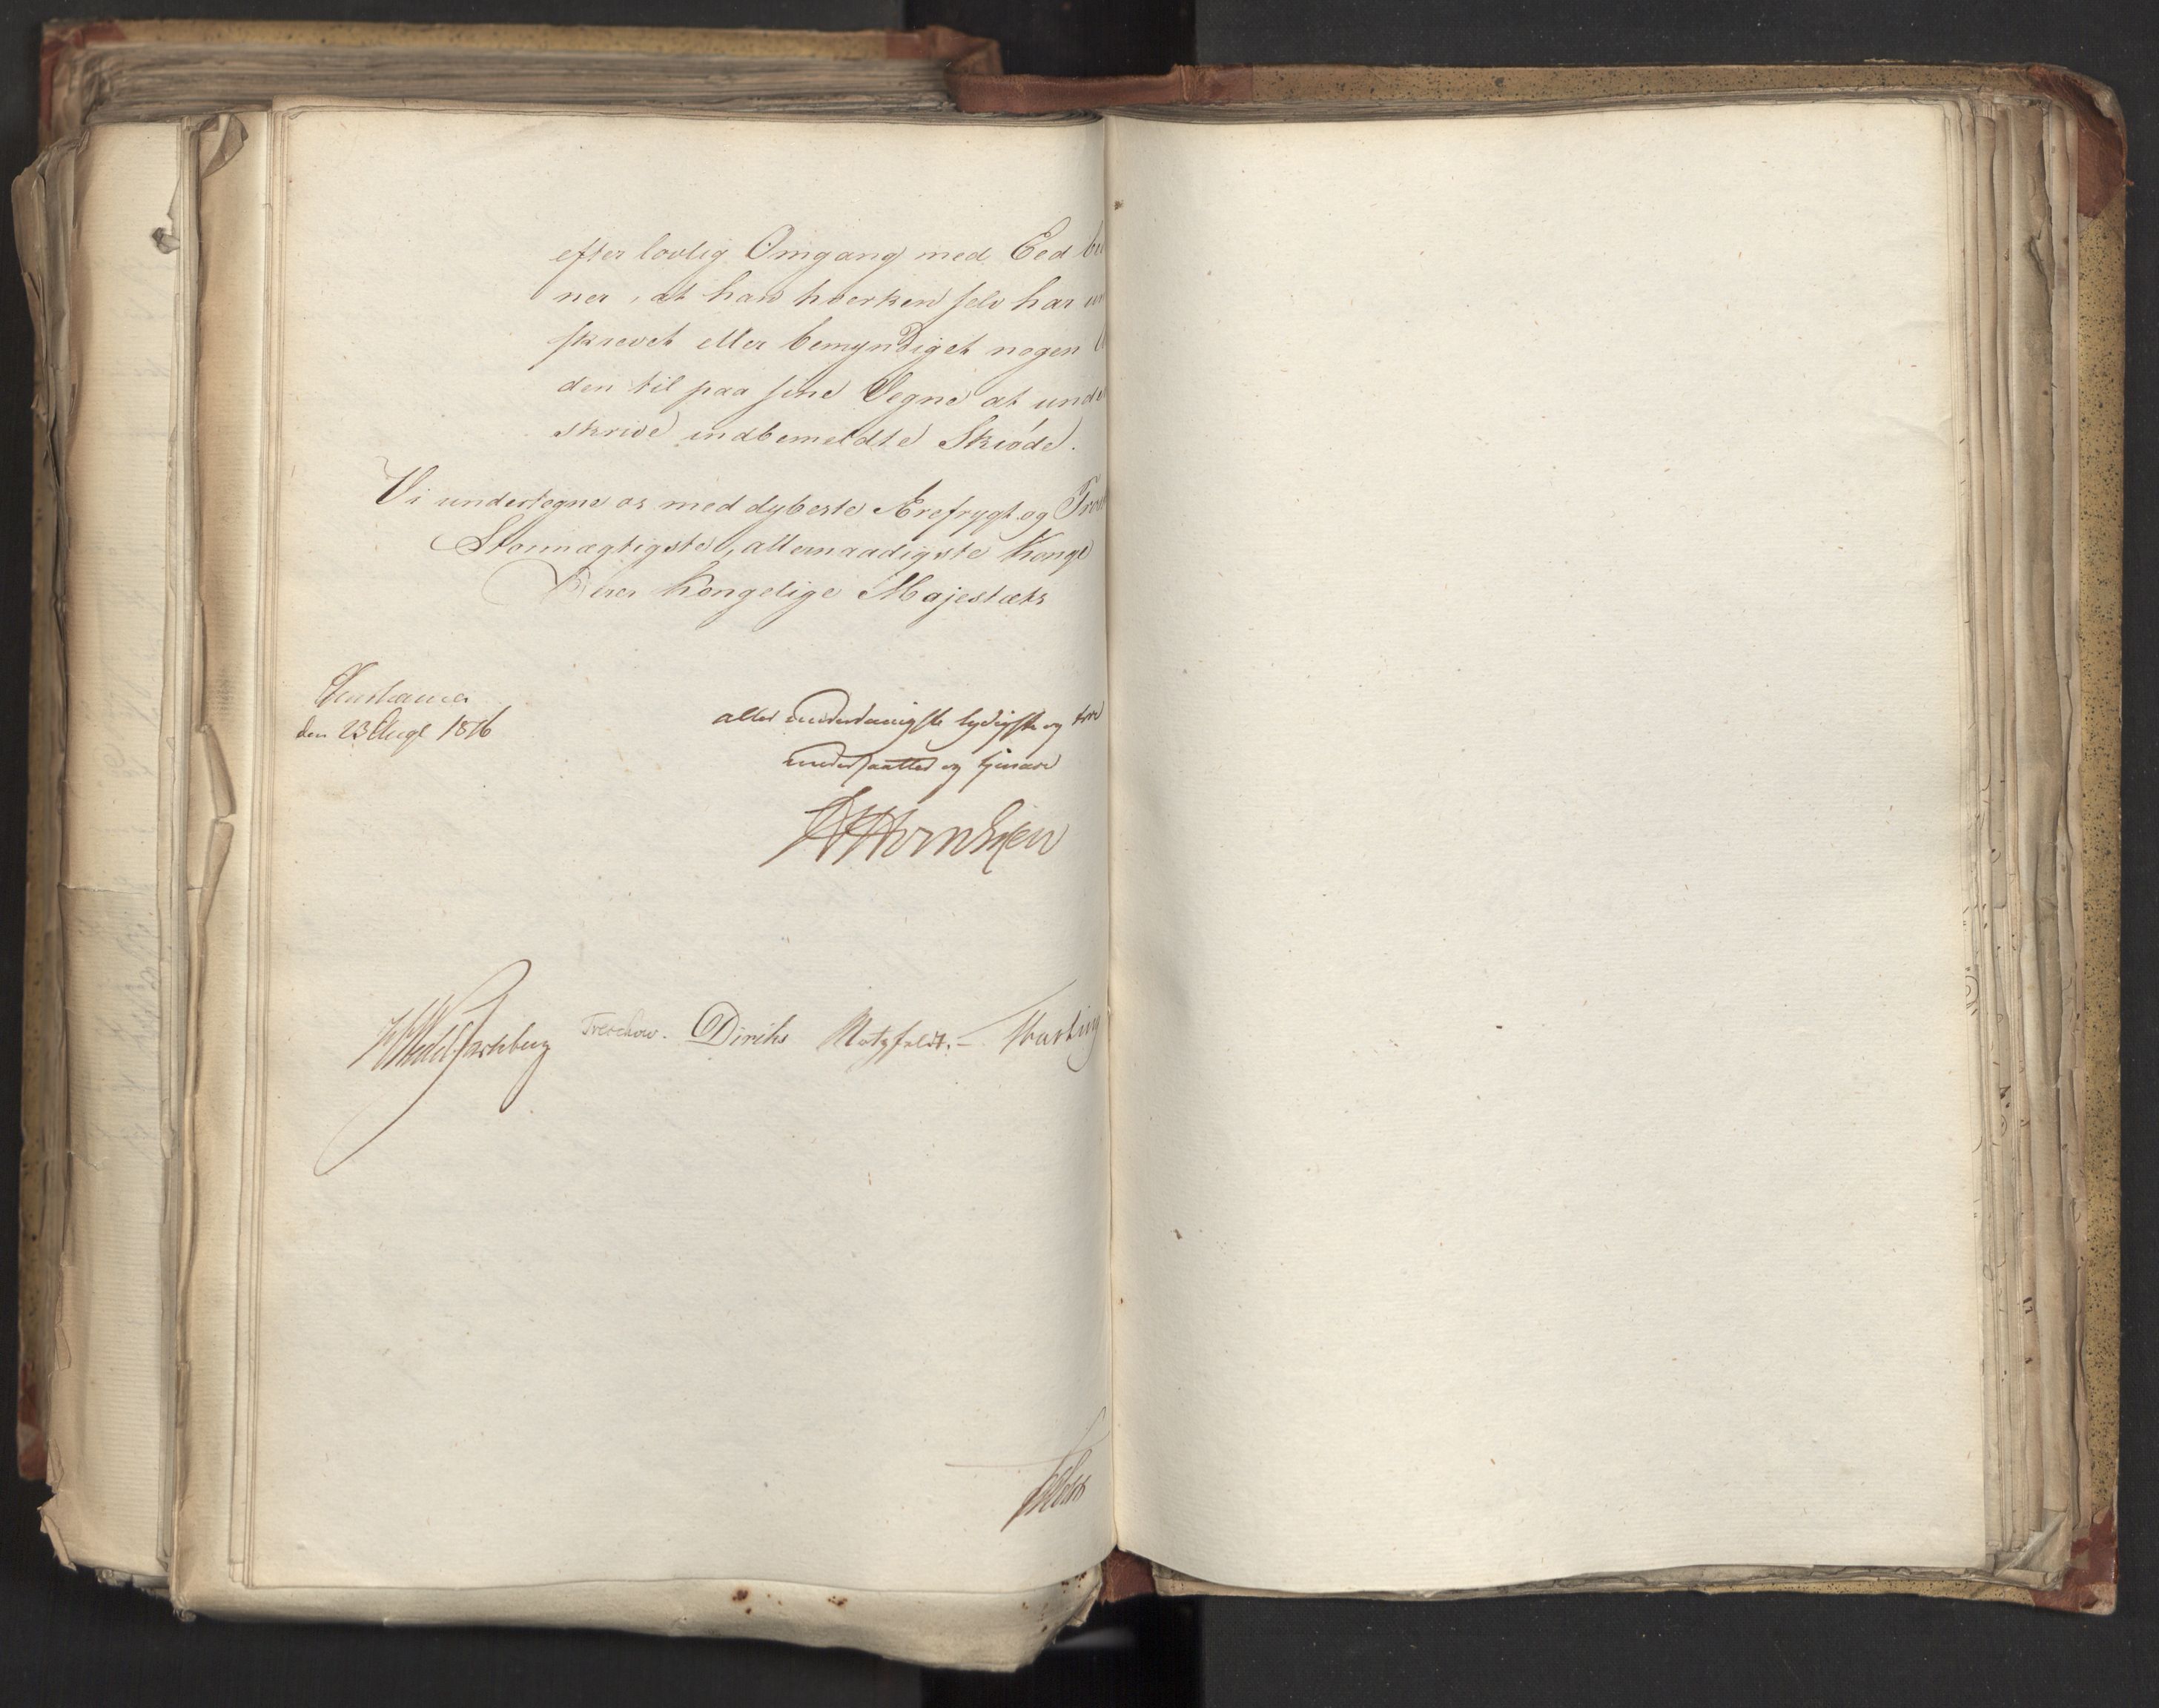 efter lovlig Omgang med Eed be
ner, at han hverken selv har un
skrevet eller bemyndiget nogen
den til paa sine Vegne at unde
skrive indbemeldte Skiøde.
Vi undertegne os med dybeste Ærefrygt og Tros
Stormægtigste, allernaadigste Konge
Deres Kongelige Majestæts
Christiania
den 23 Augt 1816
aller underdanigste lydigste og troe
undersaatter og tjenere
Wedel Jarlsberg Treschow. Diriks Motzfeldt. –